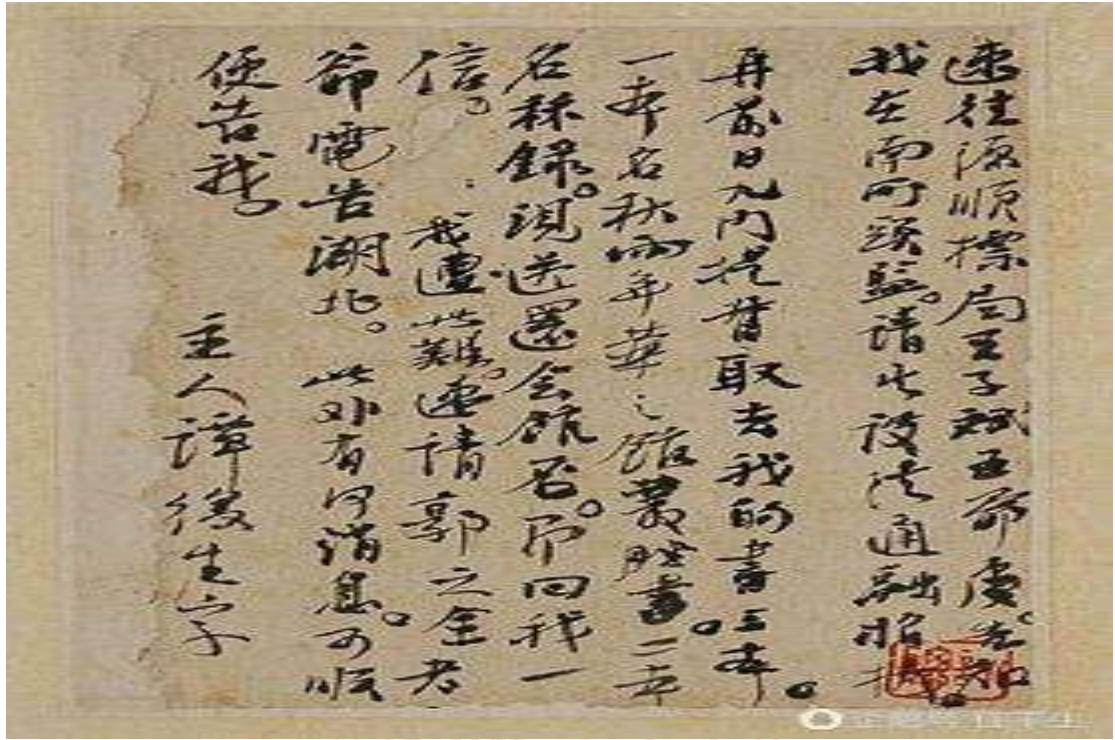 速往源順標局王子斌五爺處。告知
我在南所頭監。請其設法通融招
再前日九門提督取去我的書三本。
一本名秋雨年華之館叢脞書二本
名称錄。現送還会館否。即回我一
信。我遭此難。速請郭之全老
爺電告湖北。此外有何消息。可順
便告我。
主人譚復生字